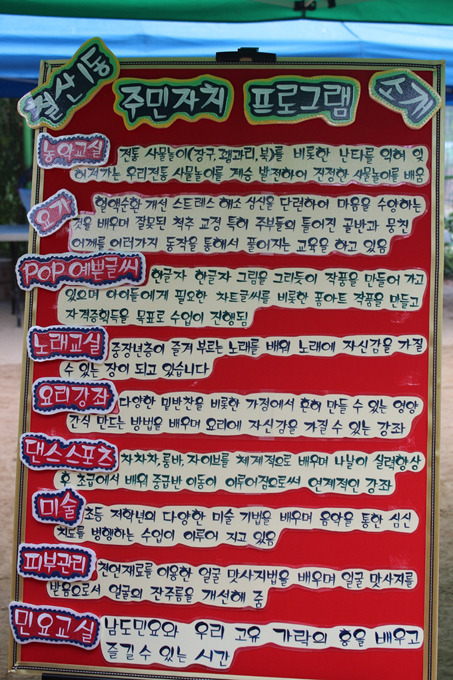 철산1동 주민자치 프로그램 소개
농악교실 전통 사물놀이(장구,꽹과리,북)를 비롯한 난타를 익혀 잊
혀져가는 우리전통 사물놀이를 계승 발전하여 진정한 사물놀이를 배움
요가 혈액순환 개선 스트레스 해소 심신을 단련하여 마음을 수양하는
것을 배우며 잘못된 척추 교정 특히 주부들의 틀어진 골반과 뭉친
어깨를 여러가지 동작을 통해서 풀어지는 교육을 하고 있음
POP예쁜글씨 한글자 한글자 그림을 그리듯이 작품을 만들어 가고
있으며 아이들에게 필요한 차트글씨를 비롯한 폼아트 작품을 만들고
자격증획득을 목표로 수업이 진행됨
노래교실 중장년층이 즐겨 부르는 노래를 배워 노래에 자신감을 가질
수 있는 장이 되고 있습니다
요리강좌 다양한 밑반찬을 비롯한 가정에서 흔히 만들 수 있는 영양
간식 만드는 방법을 배우며 요리에 자신감을 가질 수 있는 강좌
댄스스포츠 차차차, 룸바, 자이브를 체계적으로 배우며 나날이 실력향상
후 초급에서 배워 중급반 이동이 이루어짐으로써 연계적인 강좌
미술 초등 저학년의 다양한 미술 기법을 배우며 음악을 통한 심신
치료를 병행하는 수업이 이루어 지고 있음
피부관리 천연재료를 이용한 얼굴 맛사지법을 배우며 얼굴 맛사지를
받음으로서 얼굴의 잔주름을 개선해 줌
민요교실 남도민요와 우리 고유 가락의 흥을 배우고
즐길 수 있는 시간